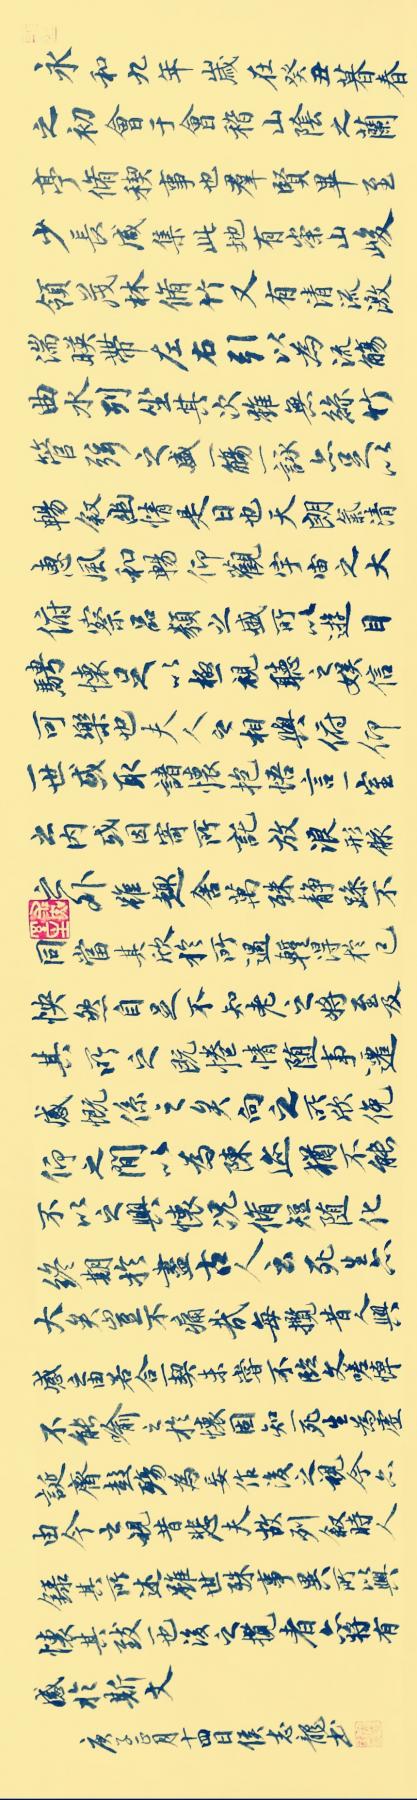 永和九年歲在癸丑暮春
之初會于會稽山陰之蘭
亭脩禊事也羣賢畢至
少長咸集此地有崇山峻
領茂林脩竹又有清流激
湍暎帶左右引以為流觴
曲水列坐其次雖無絲竹
管弦之盛一觴一詠亦足以
暢敘幽情是日也天朗氣清
惠風和暢仰觀宇宙之大
俯察品類之盛所以遊目
騁懷足以極視聽之娛信
可樂也夫人之相與俯仰
一世或取諸懷抱悟言一室
之內或因寄所託放浪形骸
之外雖趣舍萬殊靜躁不
同當其欣於所遇輒得於己
怏然自足不知老之將至及
其所之既惓情隨事遷
感慨係之矣向之所欣俛
仰之間以為陳迹猶不能
不以之興懷況脩短隨化
終期於盡古人云死生亦
大矣豈不痛哉每攬昔人興
感之由若合一契未嘗不臨文嗟悼
不能喻之於懷固知一死生為虛
誕齊彭殤為妄作後之視今亦
由今之視昔悲夫故列敘時人
錄其所述雖世殊事異所以興
懷其致一也後之攬者亦將有
感於斯文
庚子正月十四日侯志龍書